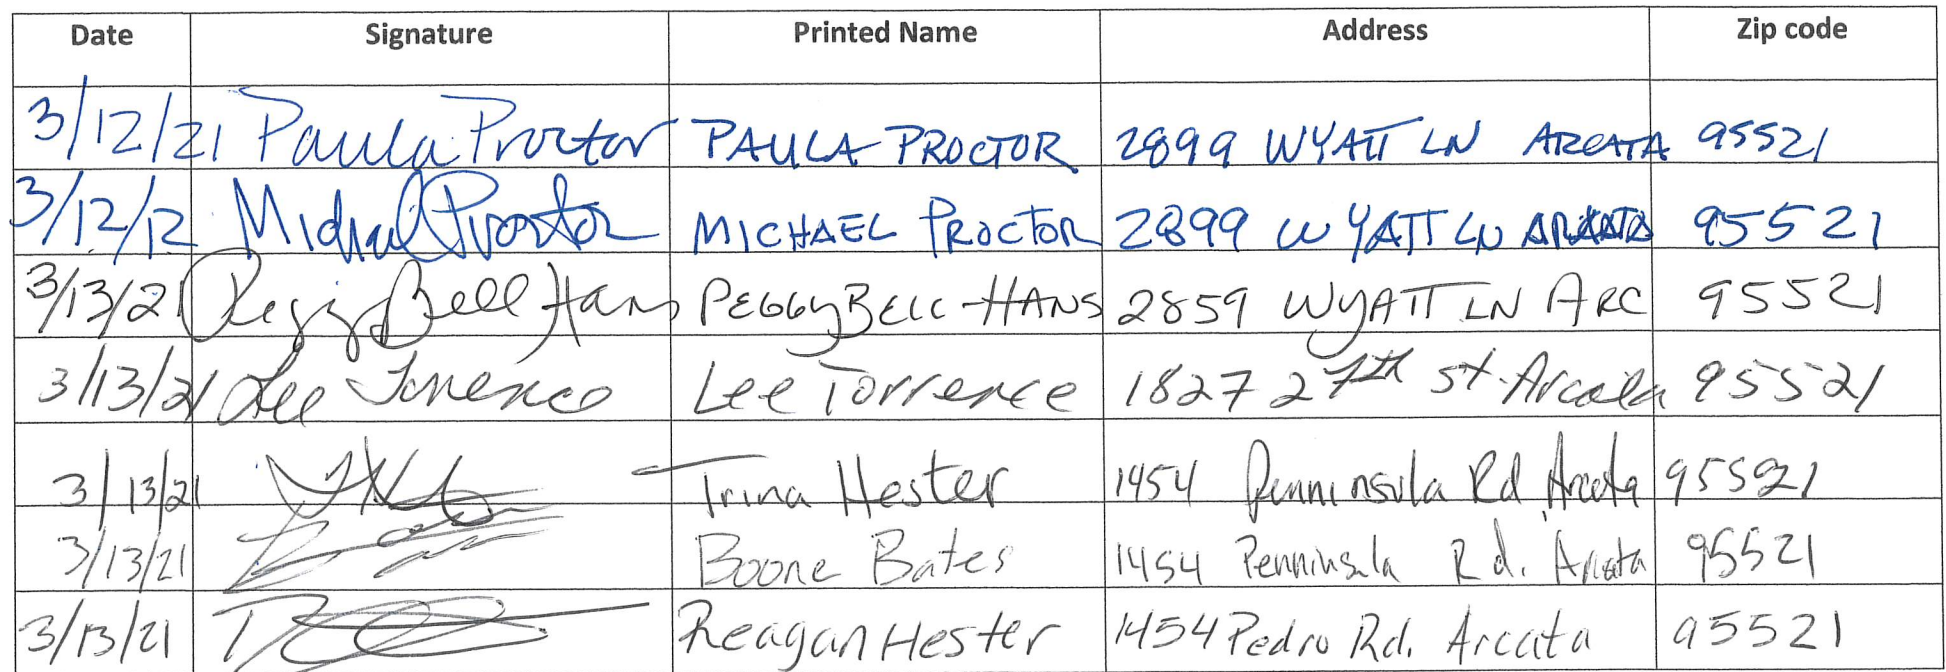 Date Signature Printed Name Address Zip code
3/12/21 Paula Proctor PAULA PROCTOR 2899 WYATT LN ARCATA 95521
3/12/12 Michael Proctor MICHAEL PROCTOR 2899 WYATT LN ARCATA 95521
3/13/21 Peggy Bell Hans PEGGY BELL-HANS 2859 WYATT LN ARC 95521
3/13/21 Lee Torrence Lee Torrence 1827 27th St. Arcata 95521
3/13/21 Trina Hester 1454 Penninsula Rd Arcata 95521
3/13/21 Boone Bates 1454 Penninsula Rd. Arcata 95521
3/13/21 Reagan Hester 1454 Pedro Rd. Arcata 95521